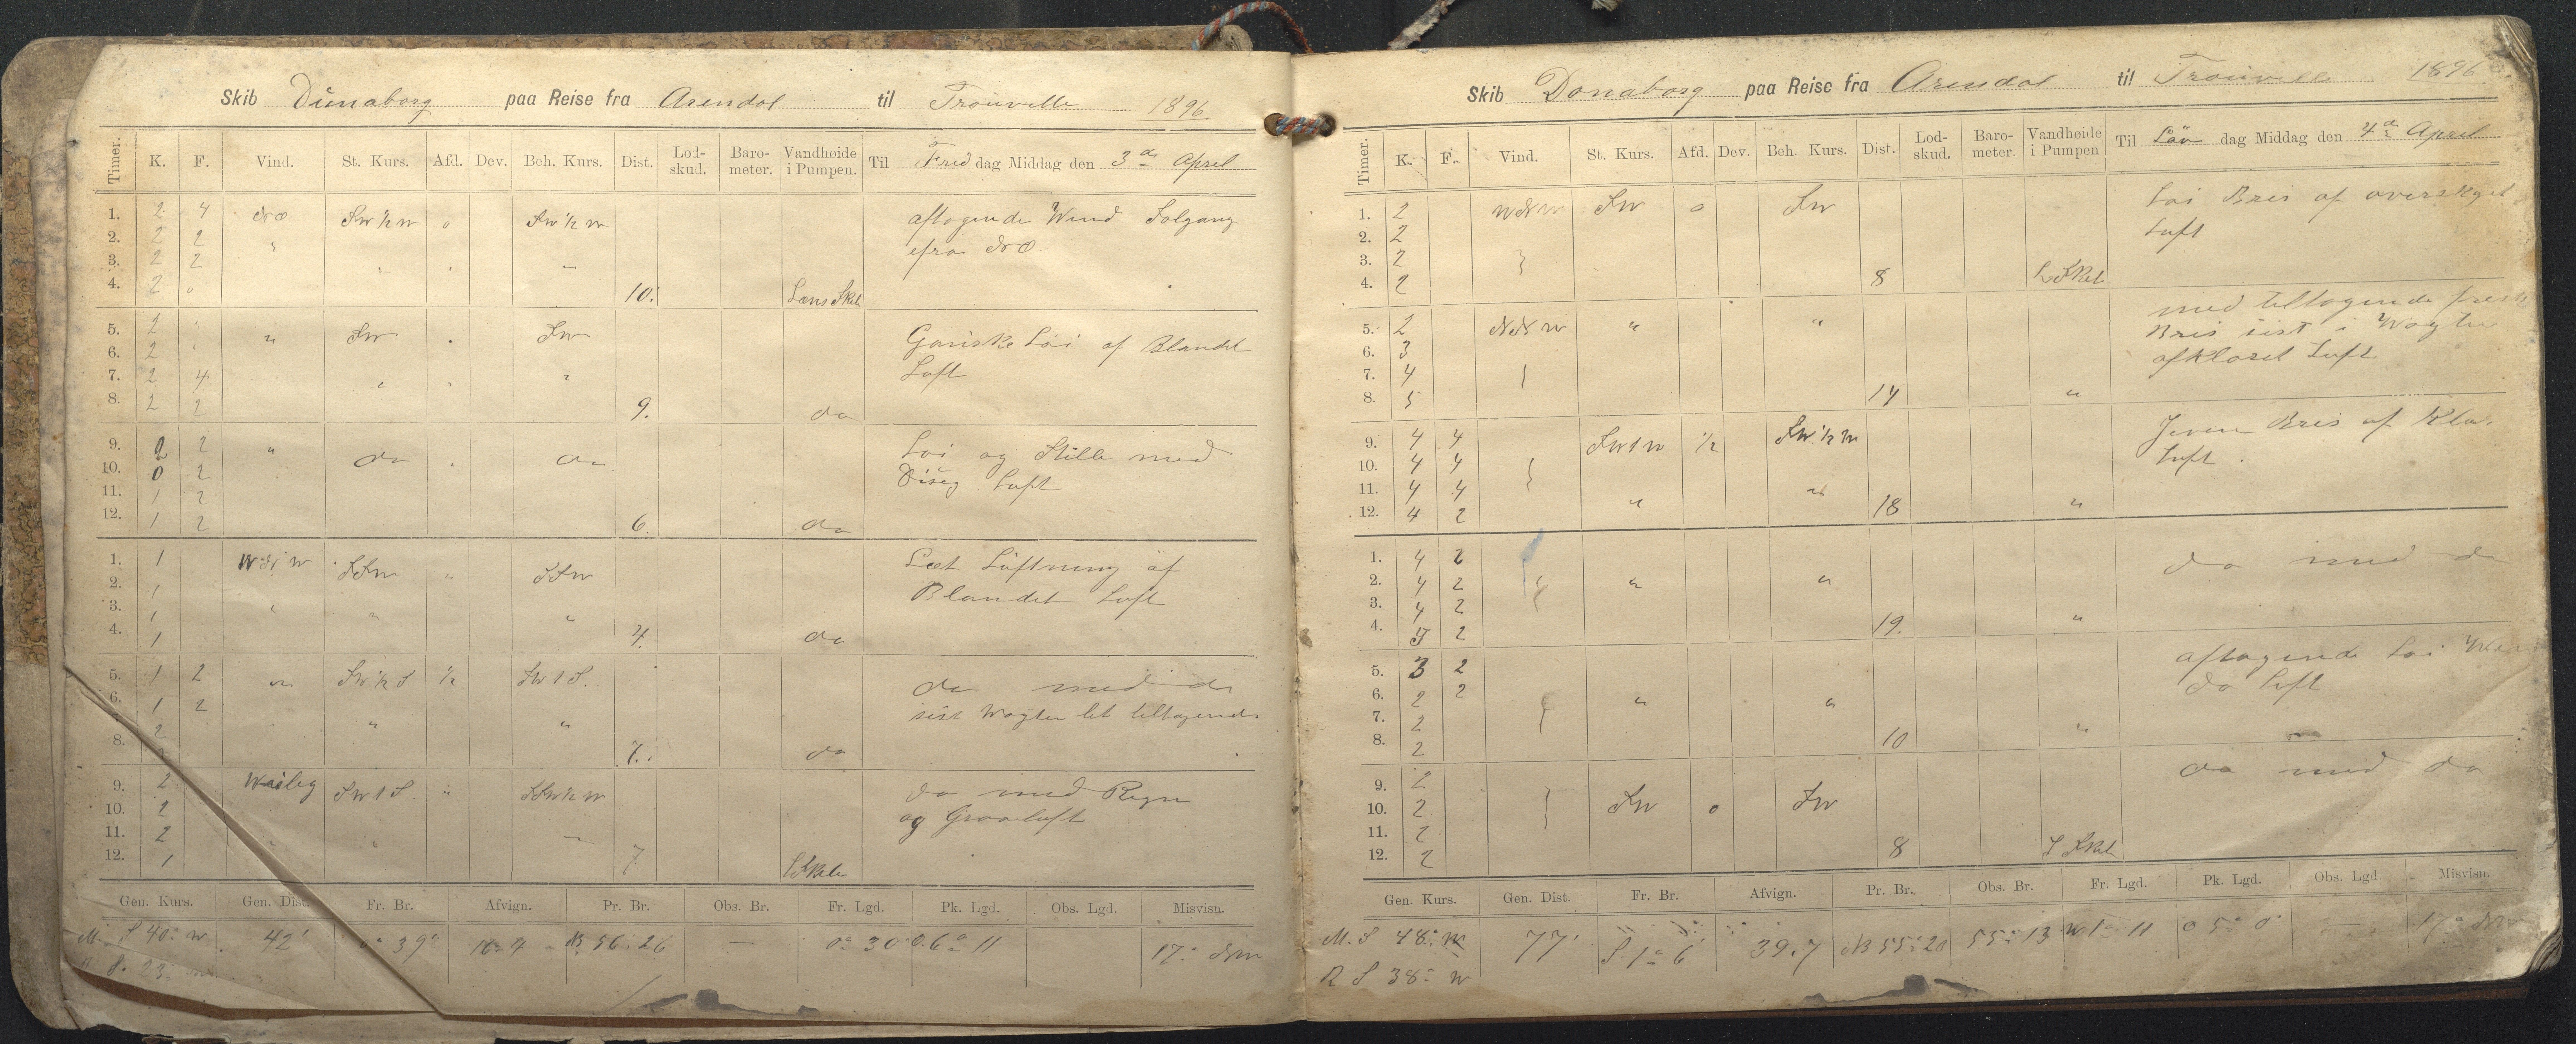 Skib Dünaborg paa Reise fra Arendal til Trouville 1896
Timer. K. F. Vind. St. Kurs. Afd. Dev. Beh. Kurs. Dist. Lod-skud. Baro-meter. Vandhøide i Pumpen. Til Freddag Middag den 3de April
1. 2 4 NO SW½W 0 SW½W aftagende Wind Solgang
2. 2 2 " efra NO.
3. 2 2 " " "
4. 2 0 10. Læns Skib
5. 2 " " SW SW Ganske Löi af Blandet
6. 2 " Luft
7. 2 4 " " "
8. 2 2 9. do
9. 2 2 " do do Löi og Stille med
10. 0 2 Disig Luft
11. 1 2
12. 1 2 6. do
1. 1 SSW " SSW Læt Luftning af
2. 1 Blandet Luft
3. 1 " " "
4. 1 4. do
5. 1 2 " SW½S ½ SW t S. do med do
6. 1 2 sist Wagten let tiltagende
2 " "
8. 7. do
9. 2 SW t S " SSW½W do med Regn
10. 2 og Graaluft
11. 2 " "
12. 1 7 L Skib
Gen. Kurs. Gen. Dist. Fr. Br. Afvign. Pr. Br. Obs. Br. Fr. Lgd. Pk. Lgd. Obs. Lgd. Misvisn.
M. S 40° W 42' 0° 39' N 56° 26 — 0° 30 O. 6° 11 17° NW
Skib Donaborg paa Reise fra Arendal til Trouville 1896
Timer. K. F. Vind. St. Kurs. Afd. Dev. Beh. Kurs. Dist. Lod-skud. Baro-meter. Vandhøide i Pumpen Til Löv dag Middag den 4de April
1. 2 WNW SW 0 SW Löi Bris af overskyet
2. 2 Luft
3. 2
4. 2 8 L Skib
5. 2 NNW " " med tiltagende frisk
6. 3 Bris sist i Wagten
7. 4 afklaret Luft
8. 5 14 "
9. 4 4 SW t W ½ SW½W Jevn Bris af Klar
10. 4 4 Luft.
11. 4 4 " "
12. 4 2 18 "
1. 4 2 do med do
2. 4 2 " "
3. 4 2
4. 5 2 19. "
5. 3 2 aftagende Löi
6. 2 2 " " do Luft
7. 2
8. 2 10 "
9. 2 do med do
10. 2 SW 0 SW
11. 2
12. 2 8 L Skib
Gen. Kurs. Gen. Dist. Fr. Br. Afvign. Pr. Br. Obs. Br. Fr. Lgd. Pk. Lgd. Obs. Lgd Misvisn.
M. S 48° W 77' S. 1° 6' 39.7 N 55° 20 55° 13 W 1° 11 O 5° 0' — 17° NW
R S 38° W